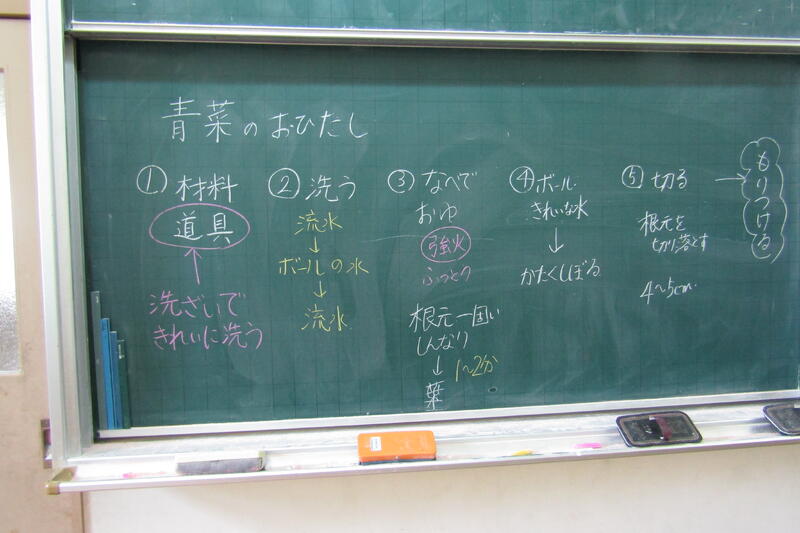 青菜のおひたし
① 材料
道具
↑
洗ざいで
きれいに洗う
② 洗う
流水
↓
ボールの水
↓
流水
③ なべで
おゆ
強火
ふっとう
根元
しんなり
↓ 1〜2分
葉
④ ボール
きれいな水
↓
かたくしぼる
⑤ 切る →
根元を
切り落とす
4〜5cm
もりつける